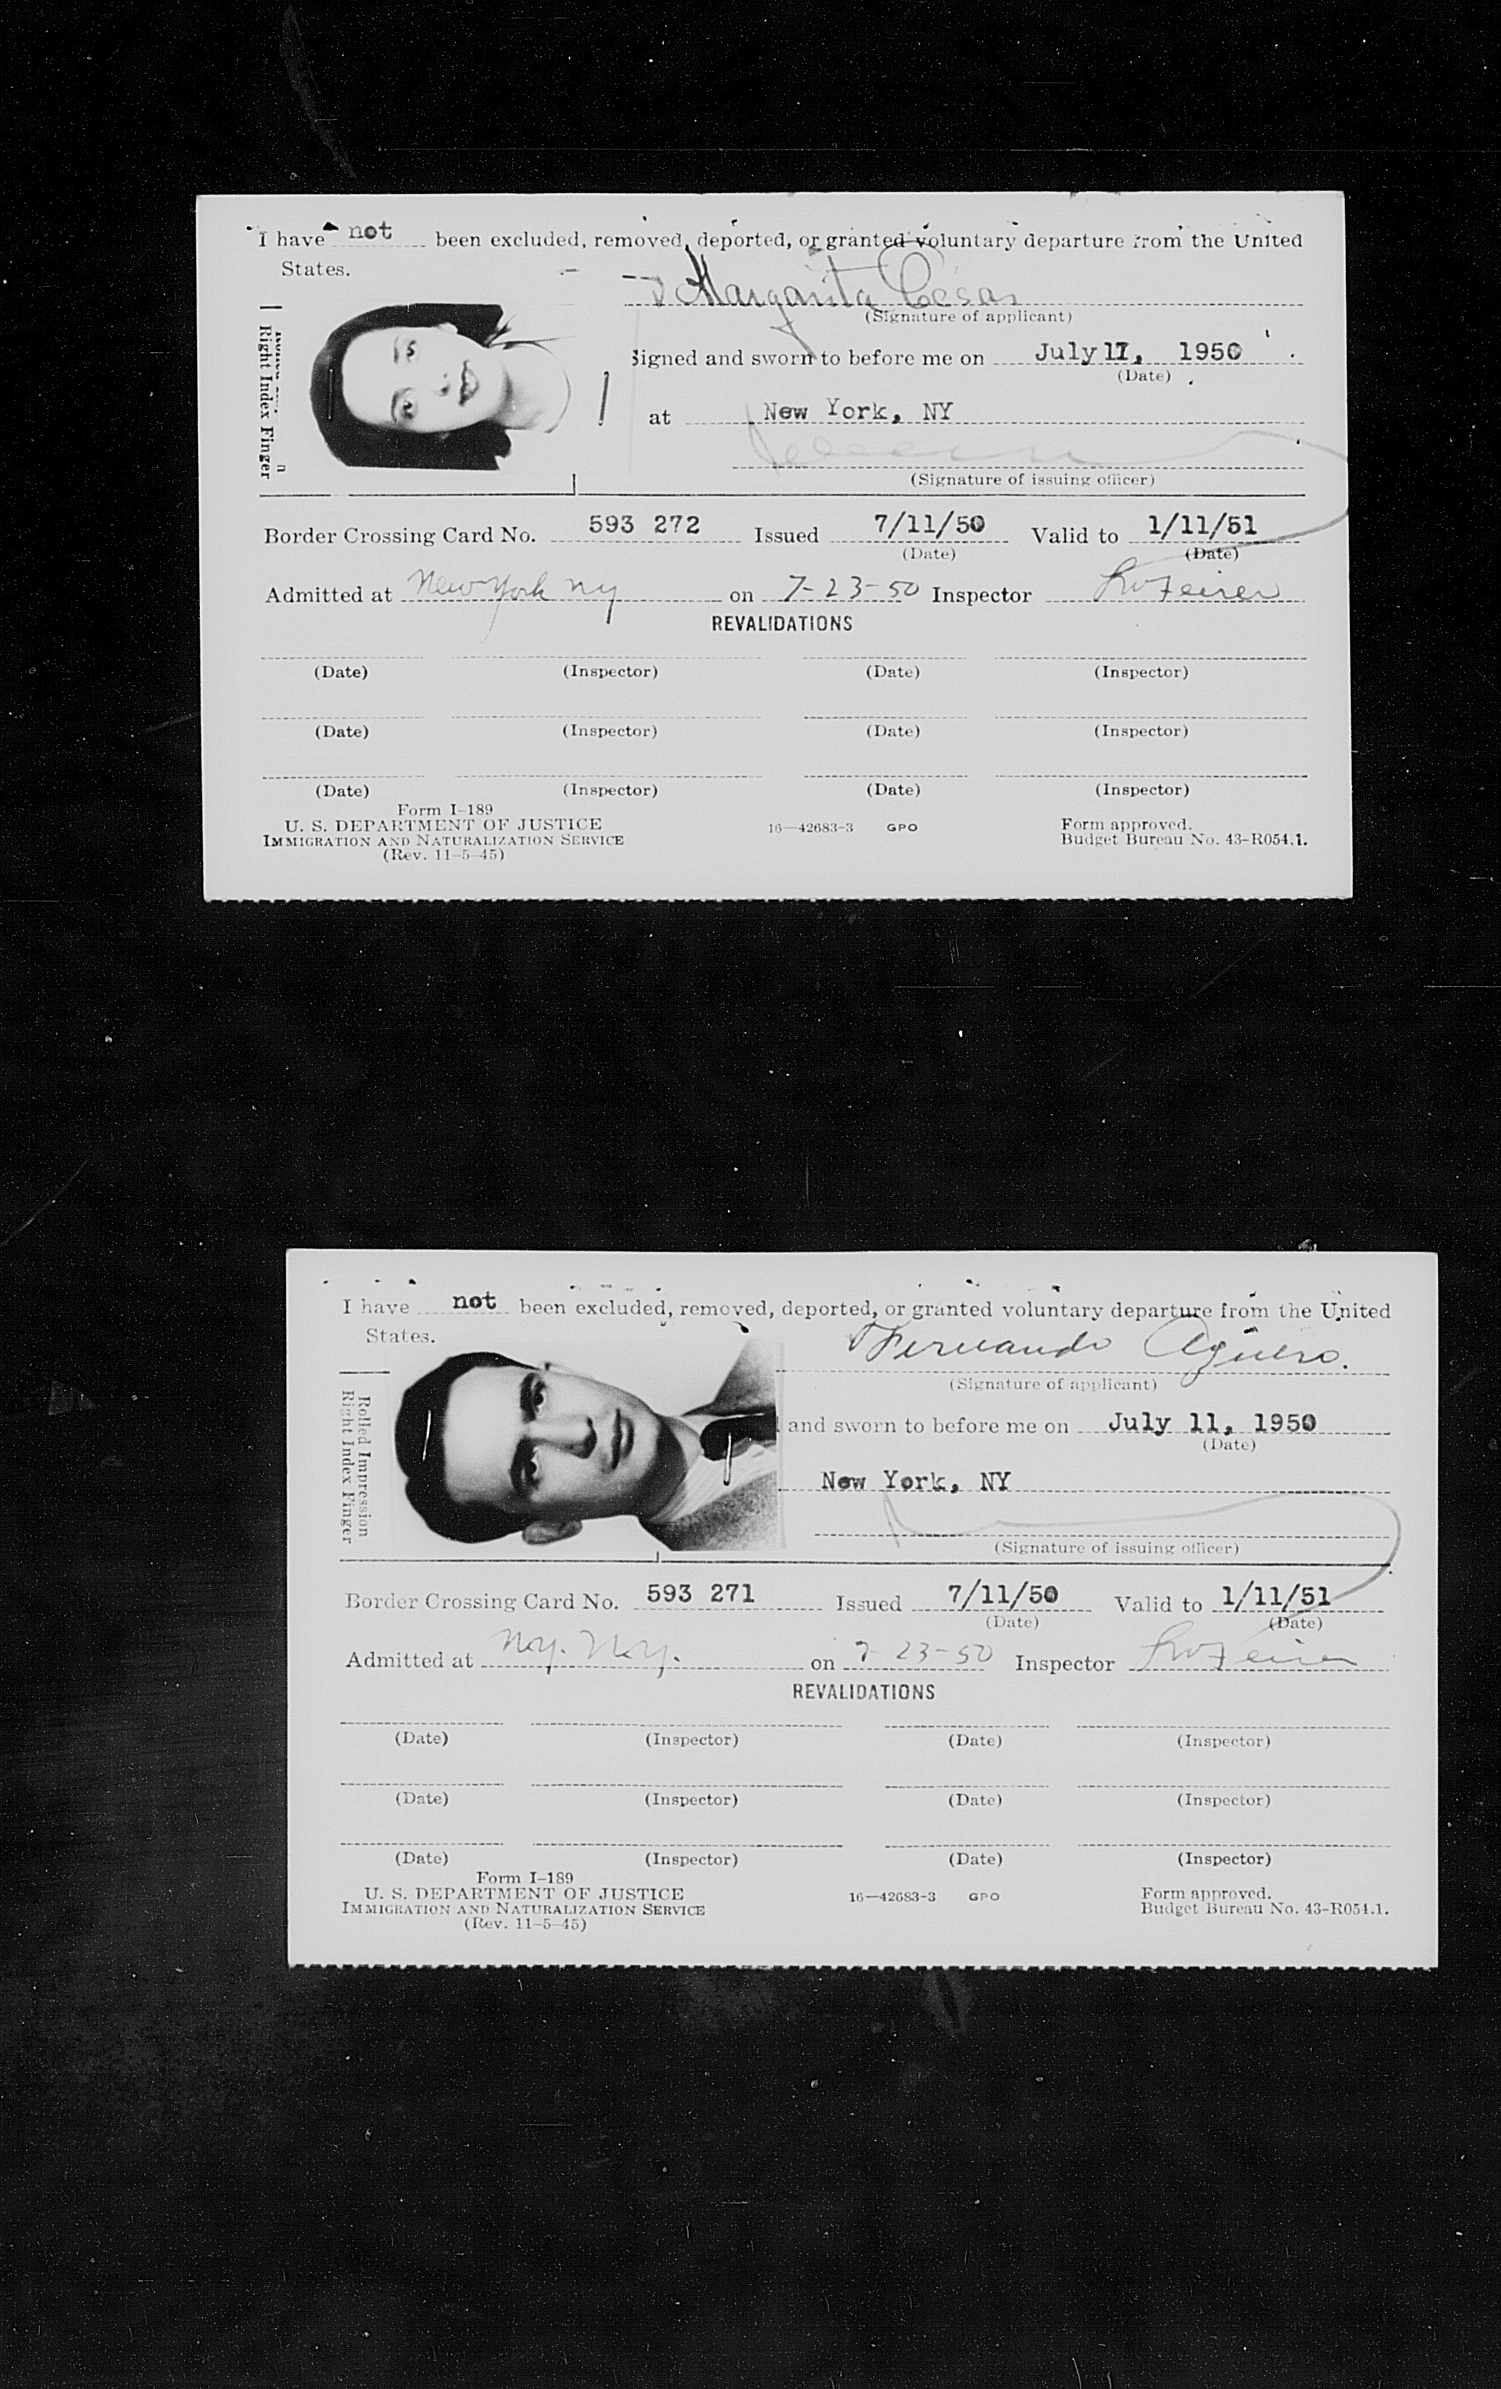 I have not been excluded, removed, deported, or granted voluntary departure from the United
States.
Margarita Cesar
(Signature of applicant)
Right Index Finger
Signed and sworn to before me on July 11, 1950
(Date)
at New York, NY
(Signature of issuing officer)
Border Crossing Card No. 593 272 Issued 7/11/50 Valid to 1/11/51
(Date) (Date)
Admitted at New York ny on 7-23-50 Inspector
REVALIDATIONS
(Date) (Inspector) (Date) (Inspector)
(Date) (Inspector) (Date) (Inspector)
(Date) (Inspector) (Date) (Inspector)
Form I-189
U. S. DEPARTMENT OF JUSTICE 16—42683-3 GPO Form approved.
IMMIGRATION AND NATURALIZATION SERVICE Budget Bureau No. 43-R054.1.
(Rev. 11-5-45)
I have not been excluded, removed, deported, or granted voluntary departure from the United
States.
Fernando Agüero.
(Signature of applicant)
Rolled Impression
Right Index Finger
and sworn to before me on July 11, 1950
(Date)
New York, NY
(Signature of issuing officer)
Border Crossing Card No. 593 271 Issued 7/11/50 Valid to 1/11/51
(Date) (Date)
Admitted at N.Y. N.Y. on 7-23-50 Inspector
REVALIDATIONS
(Date) (Inspector) (Date) (Inspector)
(Date) (Inspector) (Date) (Inspector)
(Date) (Inspector) (Date) (Inspector)
Form I-189
U. S. DEPARTMENT OF JUSTICE 16—42683-3 GPO Form approved.
IMMIGRATION AND NATURALIZATION SERVICE Budget Bureau No. 43-R054.1.
(Rev. 11-5-45)